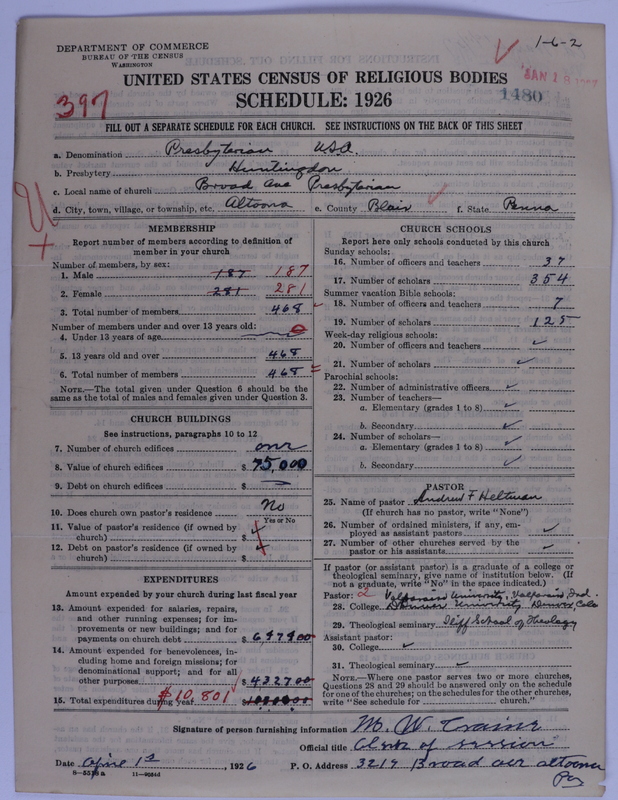 DEPARTMENT OF COMMERCE
BUREAU OF THE CENSUS
WASHINGTON
1-6-2
UNITED STATES CENSUS OF RELIGIOUS BODIES
SCHEDULE: 1926
397
JAN 18
1480
FILL OUT A SEPARATE SCHEDULE FOR EACH CHURCH. SEE INSTRUCTIONS ON THE BACK OF THIS SHEET
a. Denomination Presbyterian USA.
b. Presbytery Huntingdon
c. Local name of church Broad Ave Presbyterian
d. City, town, village, or township, etc. Altoona e. County Blair f. State Penna
MEMBERSHIP
Report number of members according to definition of
member in your church
Number of members, by sex:
1. Male 187 187
2. Female 281 281
3. Total number of members 468
Number of members under and over 13 years old:
4. Under 13 years of age 0
5. 13 years old and over 468
6. Total number of members 468
NOTE.—The total given under Question 6 should be the
same as the total of males and females given under Question 3.
CHURCH BUILDINGS
See instructions, paragraphs 10 to 12
7. Number of church edifices one
8. Value of church edifices $ 75,000
9. Debt on church edifices $
10. Does church own pastor's residence? No
Yes or No
11. Value of pastor's residence (if owned by
church) $
12. Debt on pastor's residence (if owned by
church) $
EXPENDITURES
Amount expended by your church during last fiscal year
13. Amount expended for salaries, repairs,
and other running expenses; for im-
provements or new buildings; and for
payments on church debt $
14. Amount expended for benevolences, in-
cluding home and foreign missions; for
denominational support; and for all
other purposes $ 4327.00
$10,801
15. Total expenditures during year $
CHURCH SCHOOLS
Report here only schools conducted by this church
Sunday schools:
16. Number of officers and teachers 37
17. Number of scholars 354
Summer vacation Bible schools:
18. Number of officers and teachers 7
19. Number of scholars 125
Week-day religious schools:
20. Number of officers and teachers
21. Number of scholars
Parochial schools:
22. Number of administrative officers
23. Number of teachers—
a. Elementary (grades 1 to 8)
b. Secondary
24. Number of scholars—
a. Elementary (grades 1 to 8)
b. Secondary
PASTOR
25. Name of pastor Andrew F Heltman
(If church has no pastor, write "None")
26. Number of ordained ministers, if any, em-
ployed as assistant pastors
27. Number of other churches served by the
pastor or his assistants
If pastor (or assistant pastor) is a graduate of a college or
theological seminary, give name of institution below. (If
not a graduate, write "No" in the space indicated.)
Pastor: 2 Valparaiso University, Valparaiso, Ind.
28. College Denver University Denver Colo
29. Theological seminary Iliff School of Theology
Assistant pastor:
30. College
31. Theological seminary
NOTE.—Where one pastor serves two or more churches,
Questions 28 and 29 should be answered only on the schedule
for one of the churches; on the schedules for the other churches,
write "See schedule for church."
Signature of person furnishing information M. W. Craine
Official title Clerk of Session
Date April 13, 1926 P. O. Address 3219 Broad ave altoona
Pa
8-5578 a 11-9624d